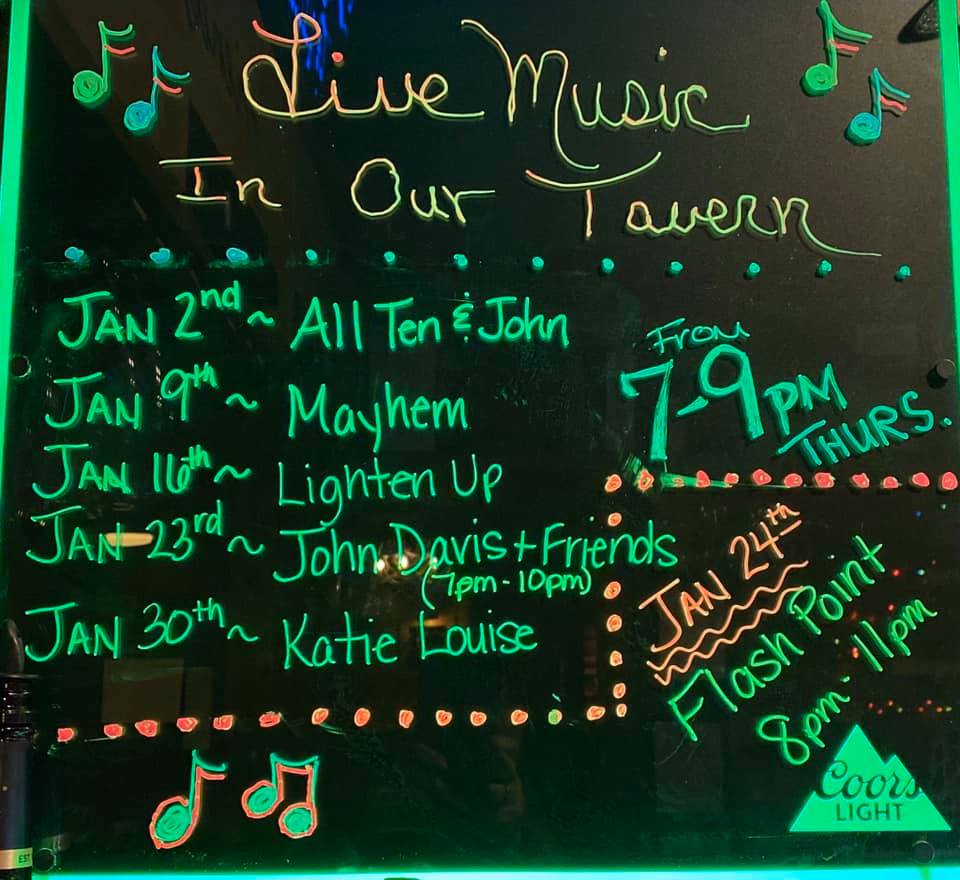 Live Music
In Our Tavern
JAN 2nd ~ All Ten & John
JAN 9th ~ Mayhem
JAN 16th ~ Lighten Up
JAN 23rd ~ John Davis + Friends
(7pm - 10pm)
JAN 30th ~ Katie Louise
From
7-9 PM
THURS.
JAN 24th
Flash Point
8pm - 11pm
Coors
LIGHT
EST